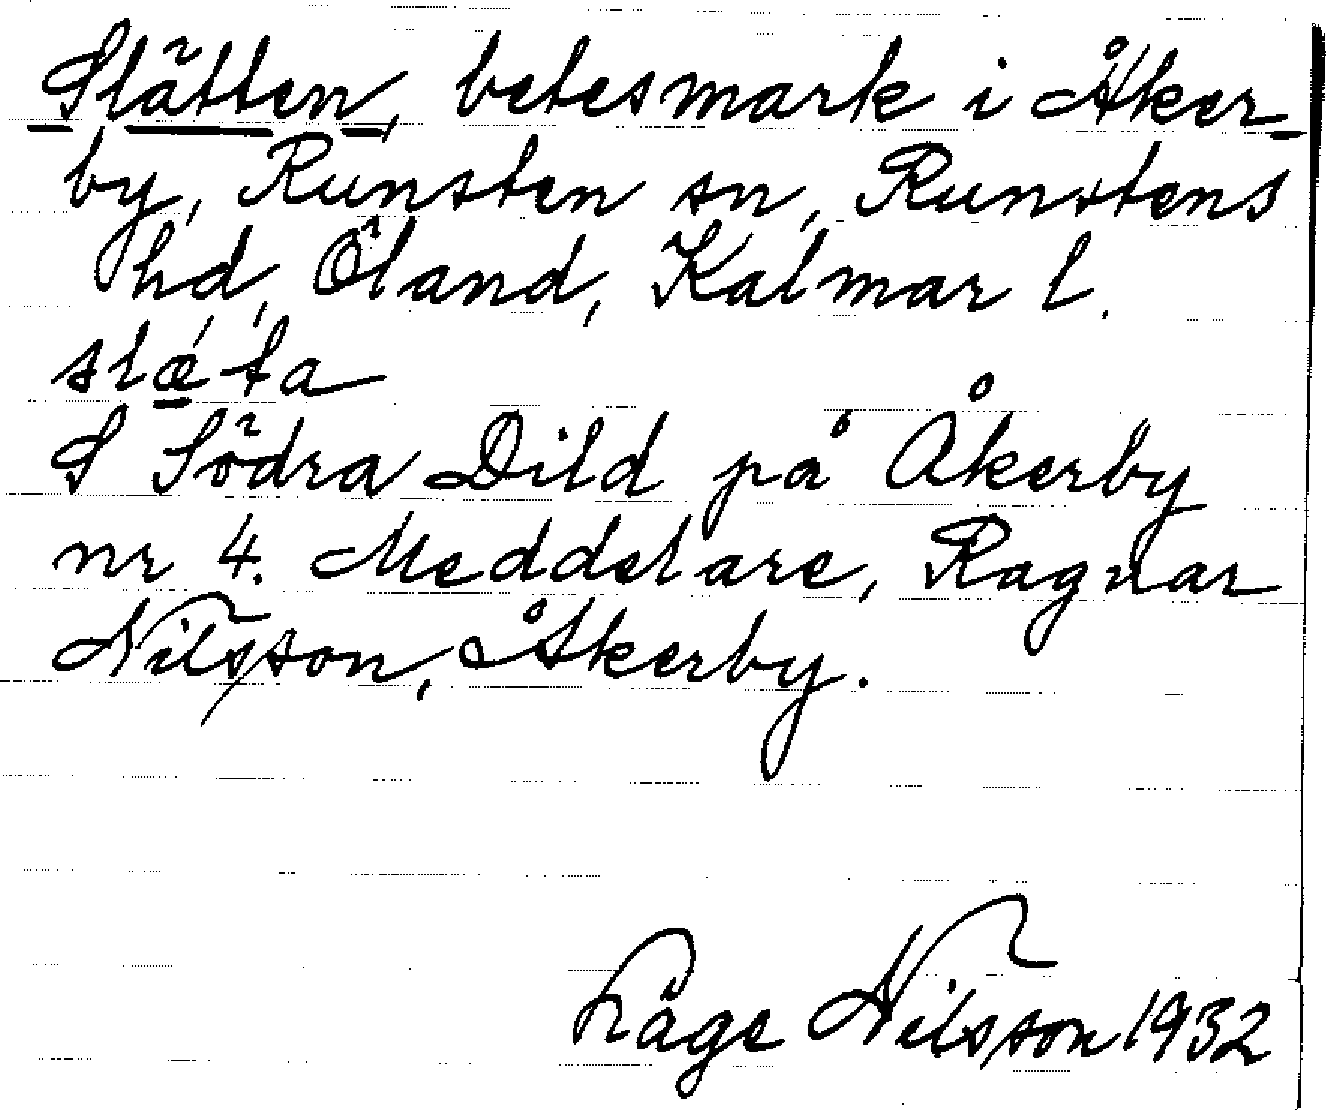 Slätten, betesmark i Åker-
by, Runsten sn, Runstens
hd, Öland, Kalmar l.
slǽta
S Södra Dild på Åkerby
nr 4. Meddelare, Ragnar
Nilsson, Åkerby.
Håge Nilsson 1932